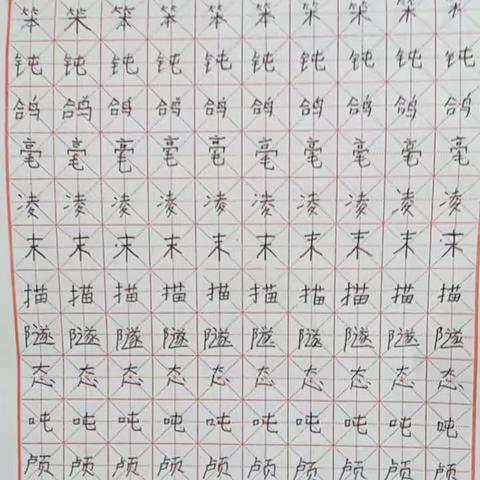 笨笨笨笨笨笨笨笨笨笨
钝钝钝钝钝钝钝钝钝钝
鸽鸽鸽鸽鸽鸽鸽鸽鸽鸽
毫毫毫毫毫毫毫毫毫毫
凌凌凌凌凌凌凌凌凌凌
末末末末末末末末末末
描描描描描描描描描描
隧隧隧隧隧隧隧隧隧隧
态态态态态态态态态态
吨吨吨吨吨吨吨吨吨吨
颅颅颅颅颅颅颅颅颅颅